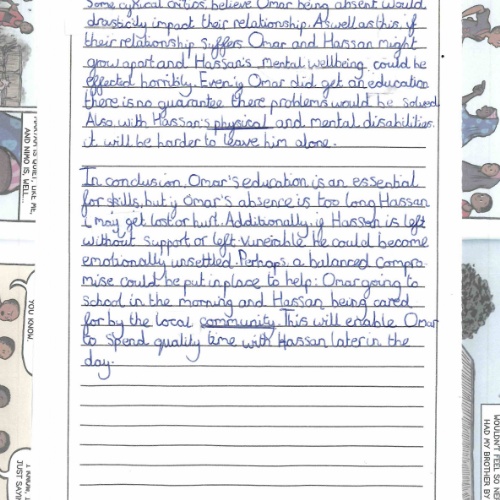 Some cynical critics, believe Omar being absent would
drasticlly impact their relationship. As well as this, if
their relationship suffers Omar and Hassan might
grow apart and Hassan's mental wellbeing could be
effected horribly. Even if Omar did get an education
there is no guarantee there problems would be solved
Also with Hassan's physical and mental disabilities.
it will be harder to leave him alone.
In conclusion, Omar's education is an essential
for skills, but if Omar's absence is too long Hassan
may get lost or hurt. Additionally, if Hassan is left
without support or left vunerable he could become
emotionally unsettled. Perhaps, a balanced compro-
mise could be put in place to help: Omar going to
school in the morning and Hassan being cared
for by the local community. This will enable Omar
to spend quality time with Hassan later in the
day.
AND NIMO IS, WELL...
YOU KNOW.
I KNOW, I
JUST SAYI
WOULDN'T FEEL SO NE
HAD MY BROTHER BY